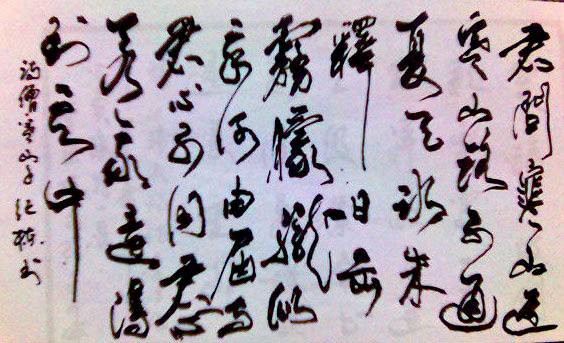 君問寒山道
寒山路不通
夏天冰未
釋日出
霧朦朧似
我何由屆與
君心不同君心
若似我還得
到其中
詩僧寒山子